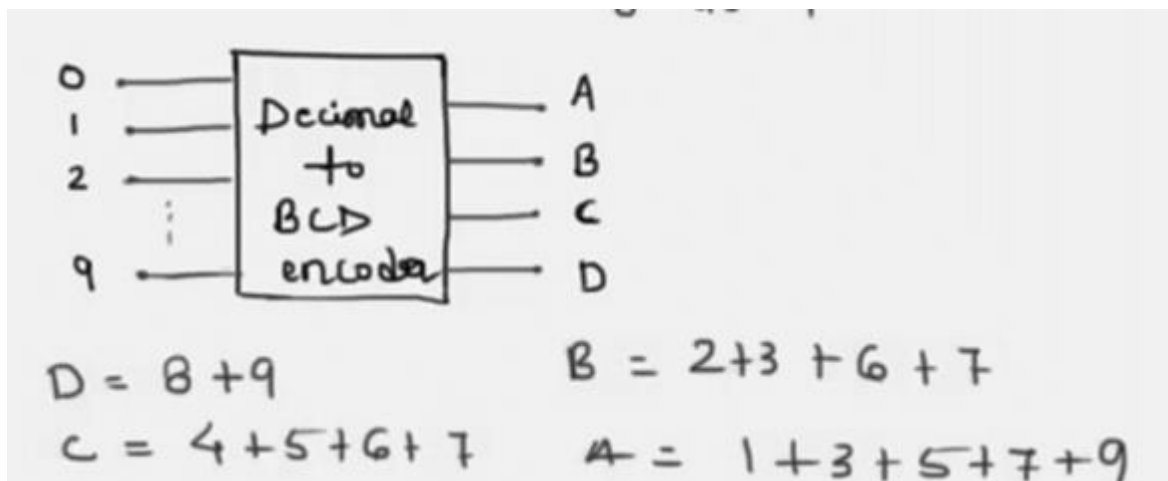 0
1
2
9
Decimal
to
BCD
encoder
A
B
C
D
D = 8 + 9
B = 2 + 3 + 6 + 7
C = 4 + 5 + 6 + 7
A = 1 + 3 + 5 + 7 + 9